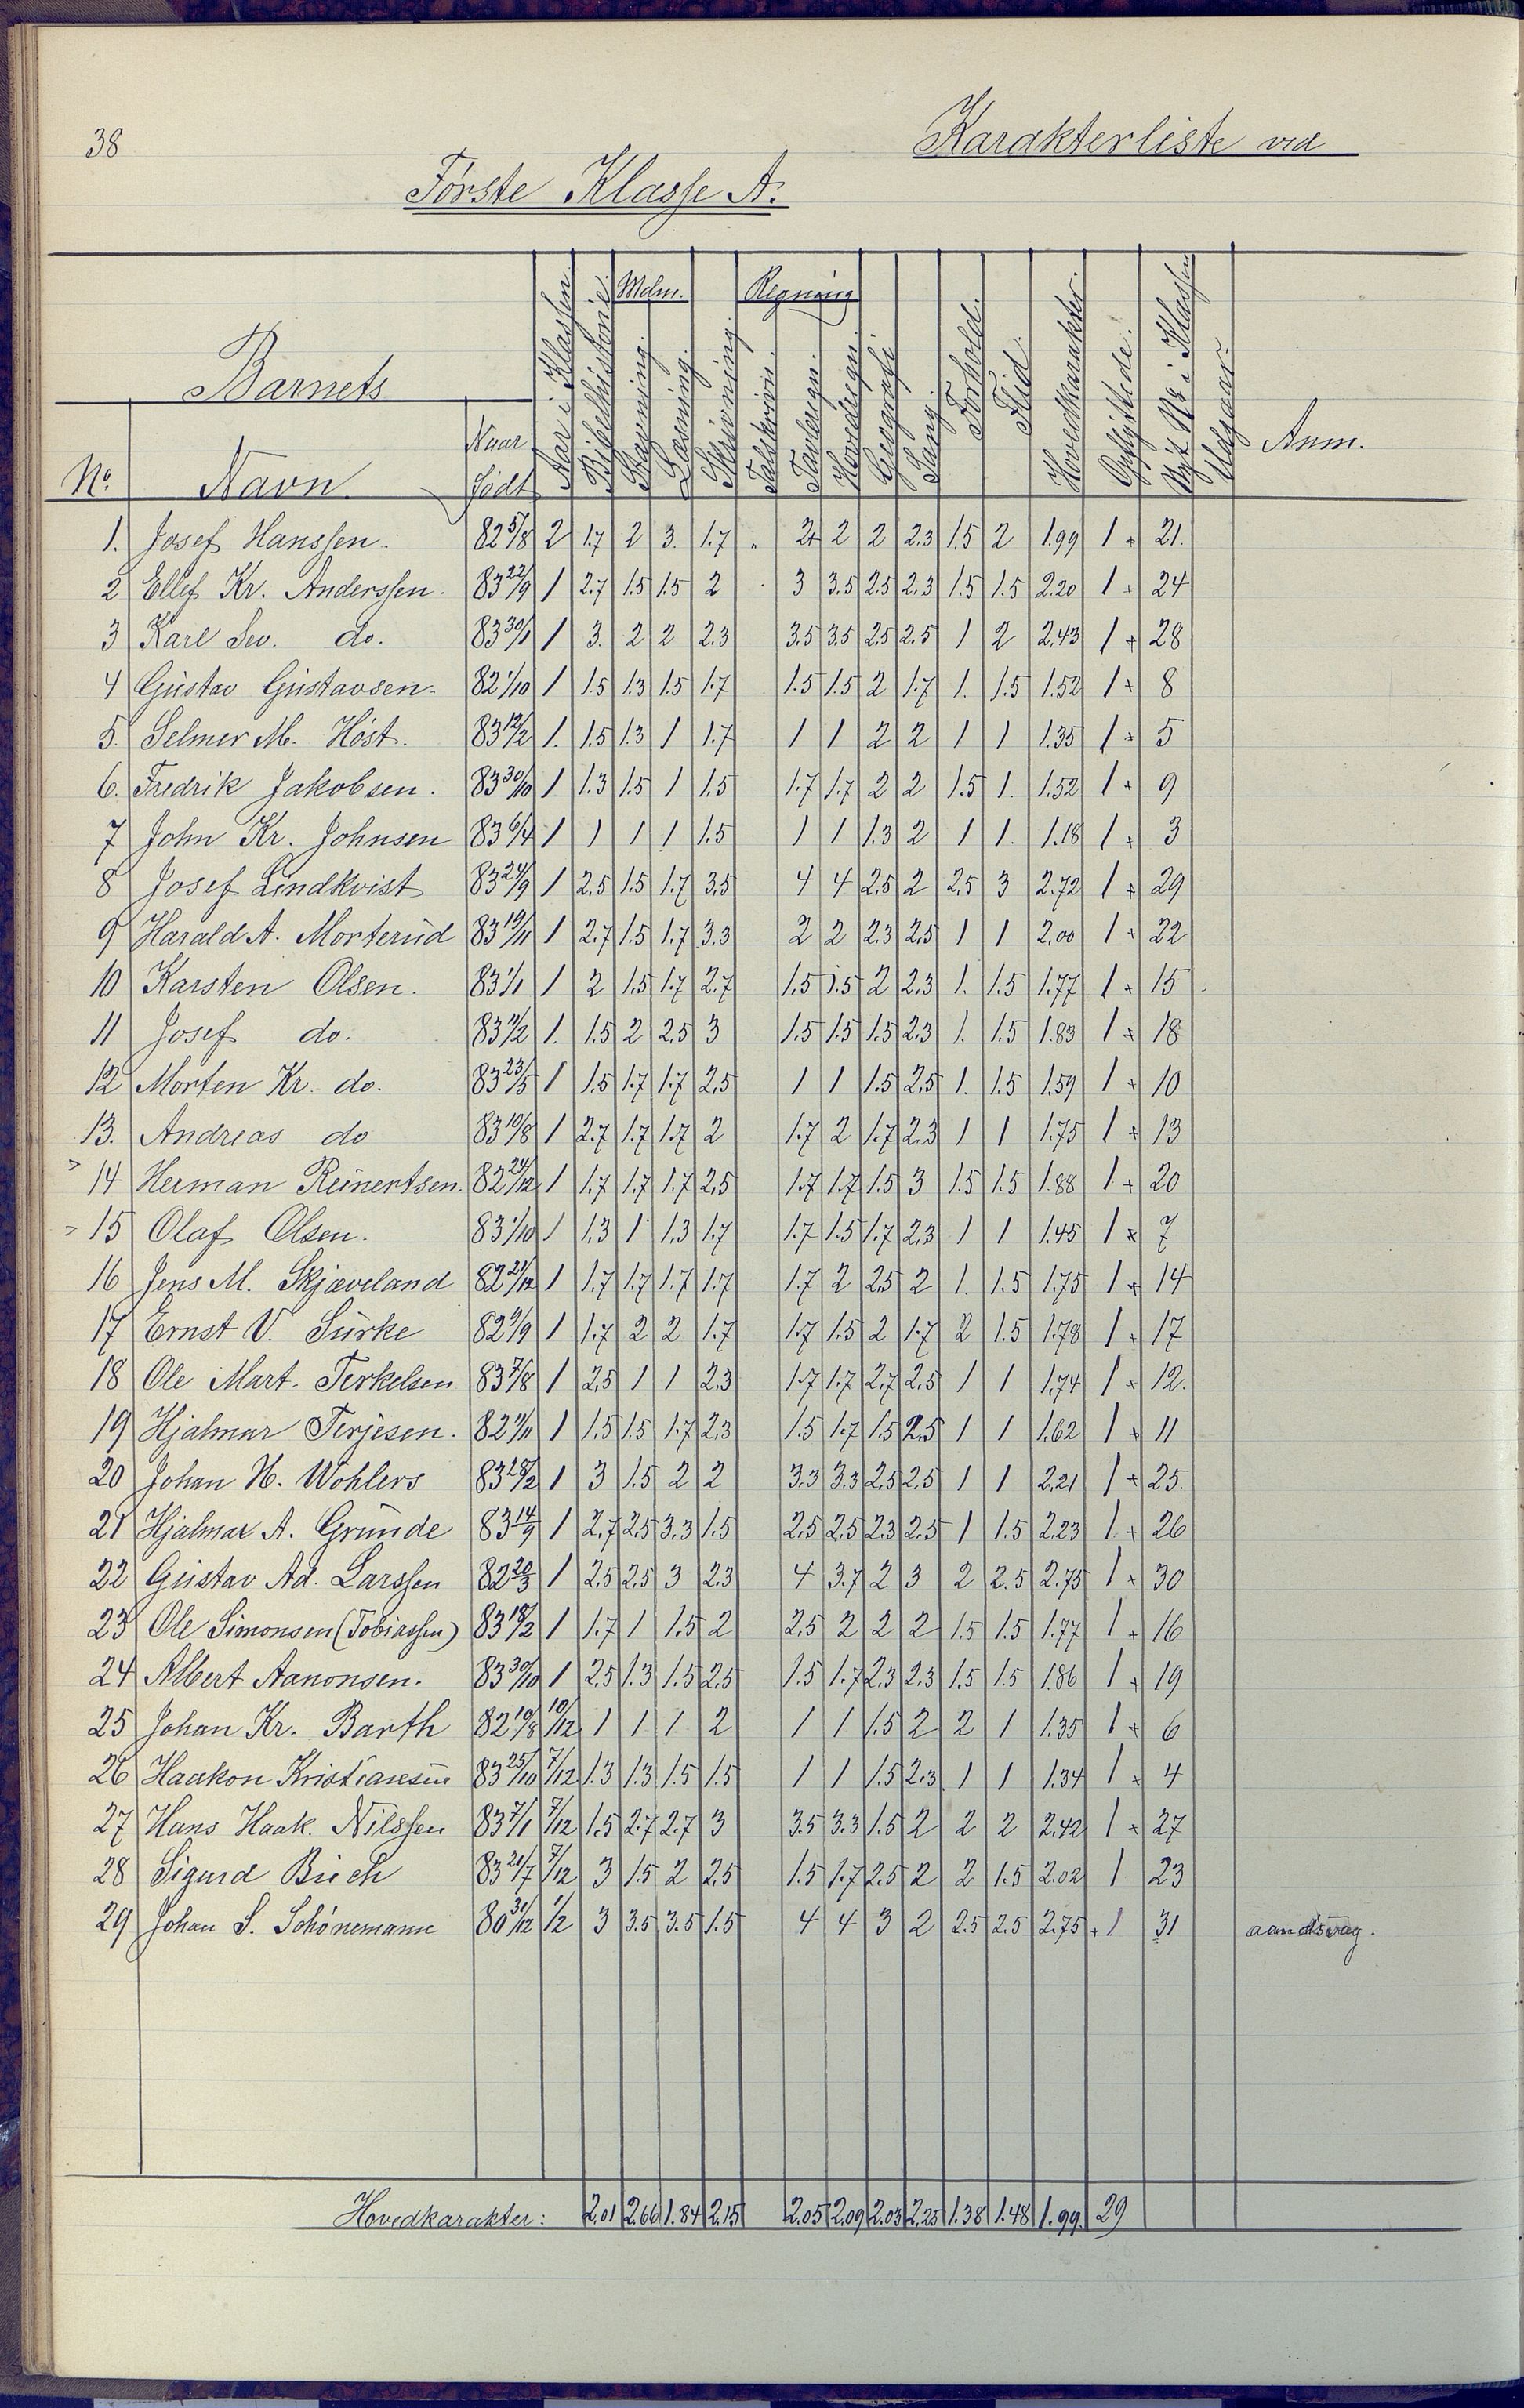 38
Karakterliste ved
Første Klasse A.
Barnets
No. Navn. Naar Født Aar i Klassen. Bibelhistorie Mdm. Stavning. Læsning. Skrivning Regning Talskrivn. Tavleregn. Hovedregn. Geografi Sang. Forhold. Flid. Hovedkarakter. Opflyttede. Nyt No i Klassen Udgaar. Anm.
1. Josef Hanssen. 82 5/8 2 1.7 2 3. 1.7 „ 2+ 2 2 2.3 1.5 2 1.99 1 + 21.
2 Ellef Kr. Anderssen. 83 22/9 1 2.7 1.5 1.5 2 3 3.5 2.5 2.3 1.5 1.5 2.20 1 + 24
3 Karl Sev. do. 83 30/1 1 3. 2 2 2.3 3.5 3.5 2.5 2.5 1 2 2.43 1 + 28
4 Gustav Gustavsen. 82 1/10 1 1.5 1.3 1.5 1.7 1.5 1.5 2 1.7 1. 1.5 1.52 1 + 8
5. Selmer M. Høst. 83 12/2 1. 1.5 1.3 1 1.7 1 1 2 2 1 1 1.35 1 + 5
6. Fredrik Jakobsen. 83 30/10 1 1.3 1.5 1 1.5 1.7 1.7 2 2 1.5 1. 1.52 1 + 9
7 John Kr. Johnsen 83 6/4 1 1 1 1 1.5 1 1 1.3 2 1 1. 1.18 1 + 3
8 Josef Lindkvist 83 24/9 1 2.5 1.5 1.7 3.5 4 4 2.5 2 2.5 3 2.72 1 + 29
9 Harald A. Morterud 83 19/11 1 2.7 1.5 1.7 3.3 2 2 2.3 2.5 1 1 2.00 1 + 22
10 Karsten Olsen. 83 1/1 1 2 1.5 1.7 2.7 1.5 1.5 2 2.3 1. 1.5 1.77 1 + 15
11 Josef do. 83 11/2 1. 1.5 2 2.5 3 1.5 1.5 1.5 2.3 1. 1.5 1.83 1 + 18
12 Morten Kr. do. 83 23/5 1 1.5 1.7 1.7 2.5 1 1 1.5 2.5 1. 1.5 1.59 1 + 10
13. Andreas do 83 10/8 1 2.7 1.7 1.7 2 1.7 2 1.7 2.3 1 1 1.75 1 + 13
14 Herman Reinertsen. 82 24/12 1 1.7 1.7 1.7 2.5 1.7 1.7 1.5 3 1.5 1.5 1.88 1 + 20
15 Olaf Olsen. 83 1/10 1 1.3 1 1.3 1.7 1.7 1.5 1.7 2.3 1 1 1.45 1 + 7
16 Jens M. Skjæveland 82 21/12 1 1.7 1.7 1.7 1.7 1.7 2 2.5 2 1. 1.5 1.75 1 + 14
17 Ernst V. Surke 82 9/9 1 1.7 2 2 1.7 1.7 1.5 2 1.7 2 1.5 1.78 1 + 17
18 Ole Mart. Terkelsen 83 7/8 1 2.5 1 1 2.3 1.7 1.7 2.7 2.5 1 1 1.74 1 + 12.
19 Hjalmar Terjesen. 82 11/11 1 1.5 1.5 1.7 2.3 1.5 1.7 1.5 2.5 1 1 1.62 1 + 11
20 Johan H. Wohlers 83 28/2 1 3 1.5 2 2 3.3 3.3 2.5 2.5 1 1 2.21 1 + 25.
21 Hjalmar A. Grunde 83 14/9 1 2.7 2.5 3.3 1.5 2.5 2.5 2.3 2.5 1 1.5 2.23 1 + 26
22 Gustav Ad. Larssen 82 20/3 1 2.5 2.5 3 2.3 4 3.7 2 3 2 2.5 2.75 1 + 30
23 Ole Simonsen (Tobiassen) 83 18/2 1 1.7 1 1.5 2 2.5 2 2 2 1.5 1.5 1.77 1 + 16
24 Albert Aanonsen. 83 30/10 1 2.5 1.3 1.5 2.5 1.5 1.7 2.3 2.3 1.5 1.5 1.86 1 + 19
25 Johan Kr. Barth 82 19/8 10/12 1 1 1 2 1 1 1.5 2 2 1 1.35 1 + 6
26 Haakon Kristiansen 83 25/10 7/12 1.3 1.3 1.5 1.5 1 1 1.5 2.3 1 1 1.34 1 + 4
27 Hans Haak. Nilssen 83 7/1 7/12 1.5 2.7 2.7 3 3.5 3.3 1.5 2 2 2 2.42 1 + 27
28 Sigurd Buch 83 21/7 7/12 3 1.5 2 2.5 1.5 1.7 2.5 2 2 1.5 2.02 1 23
29 Johan S. Schønemann 80 31/12 1/2 3 3.5 3.5 1.5 4 4 3 2 2.5 2.5 2.75 + 1 31 aandssvag.
Hovedkarakter: 2.01 2.66 1.84 2.15 2.05 2.09 2.03 2.25 1.38 1.48 1.99. 29